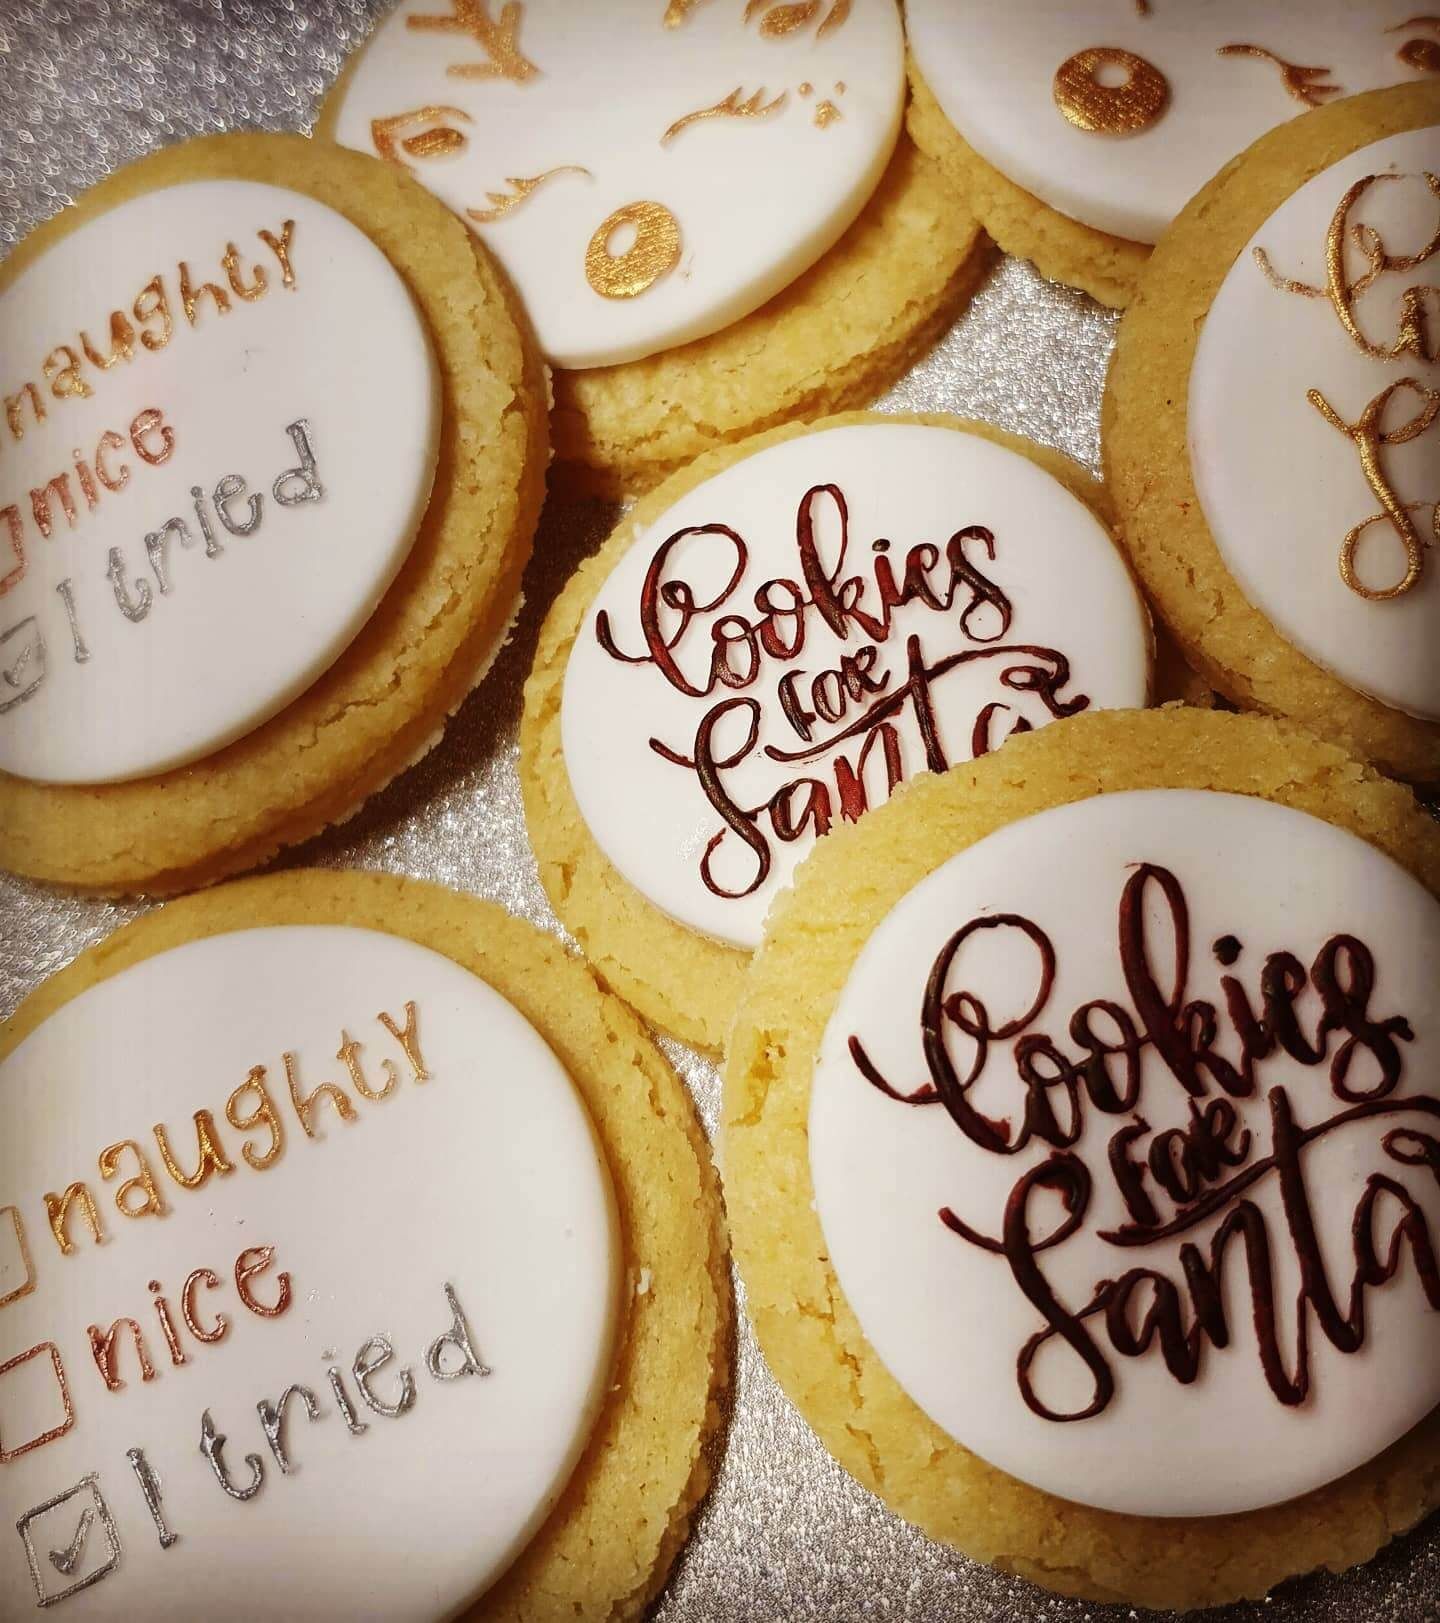 naughty
nice
I tried
Cookies
for
Santa
naughty
nice
I tried
Cookies
for
Santa